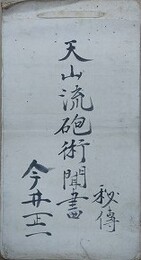 天山流砲術聞書
秘傳
今井正一